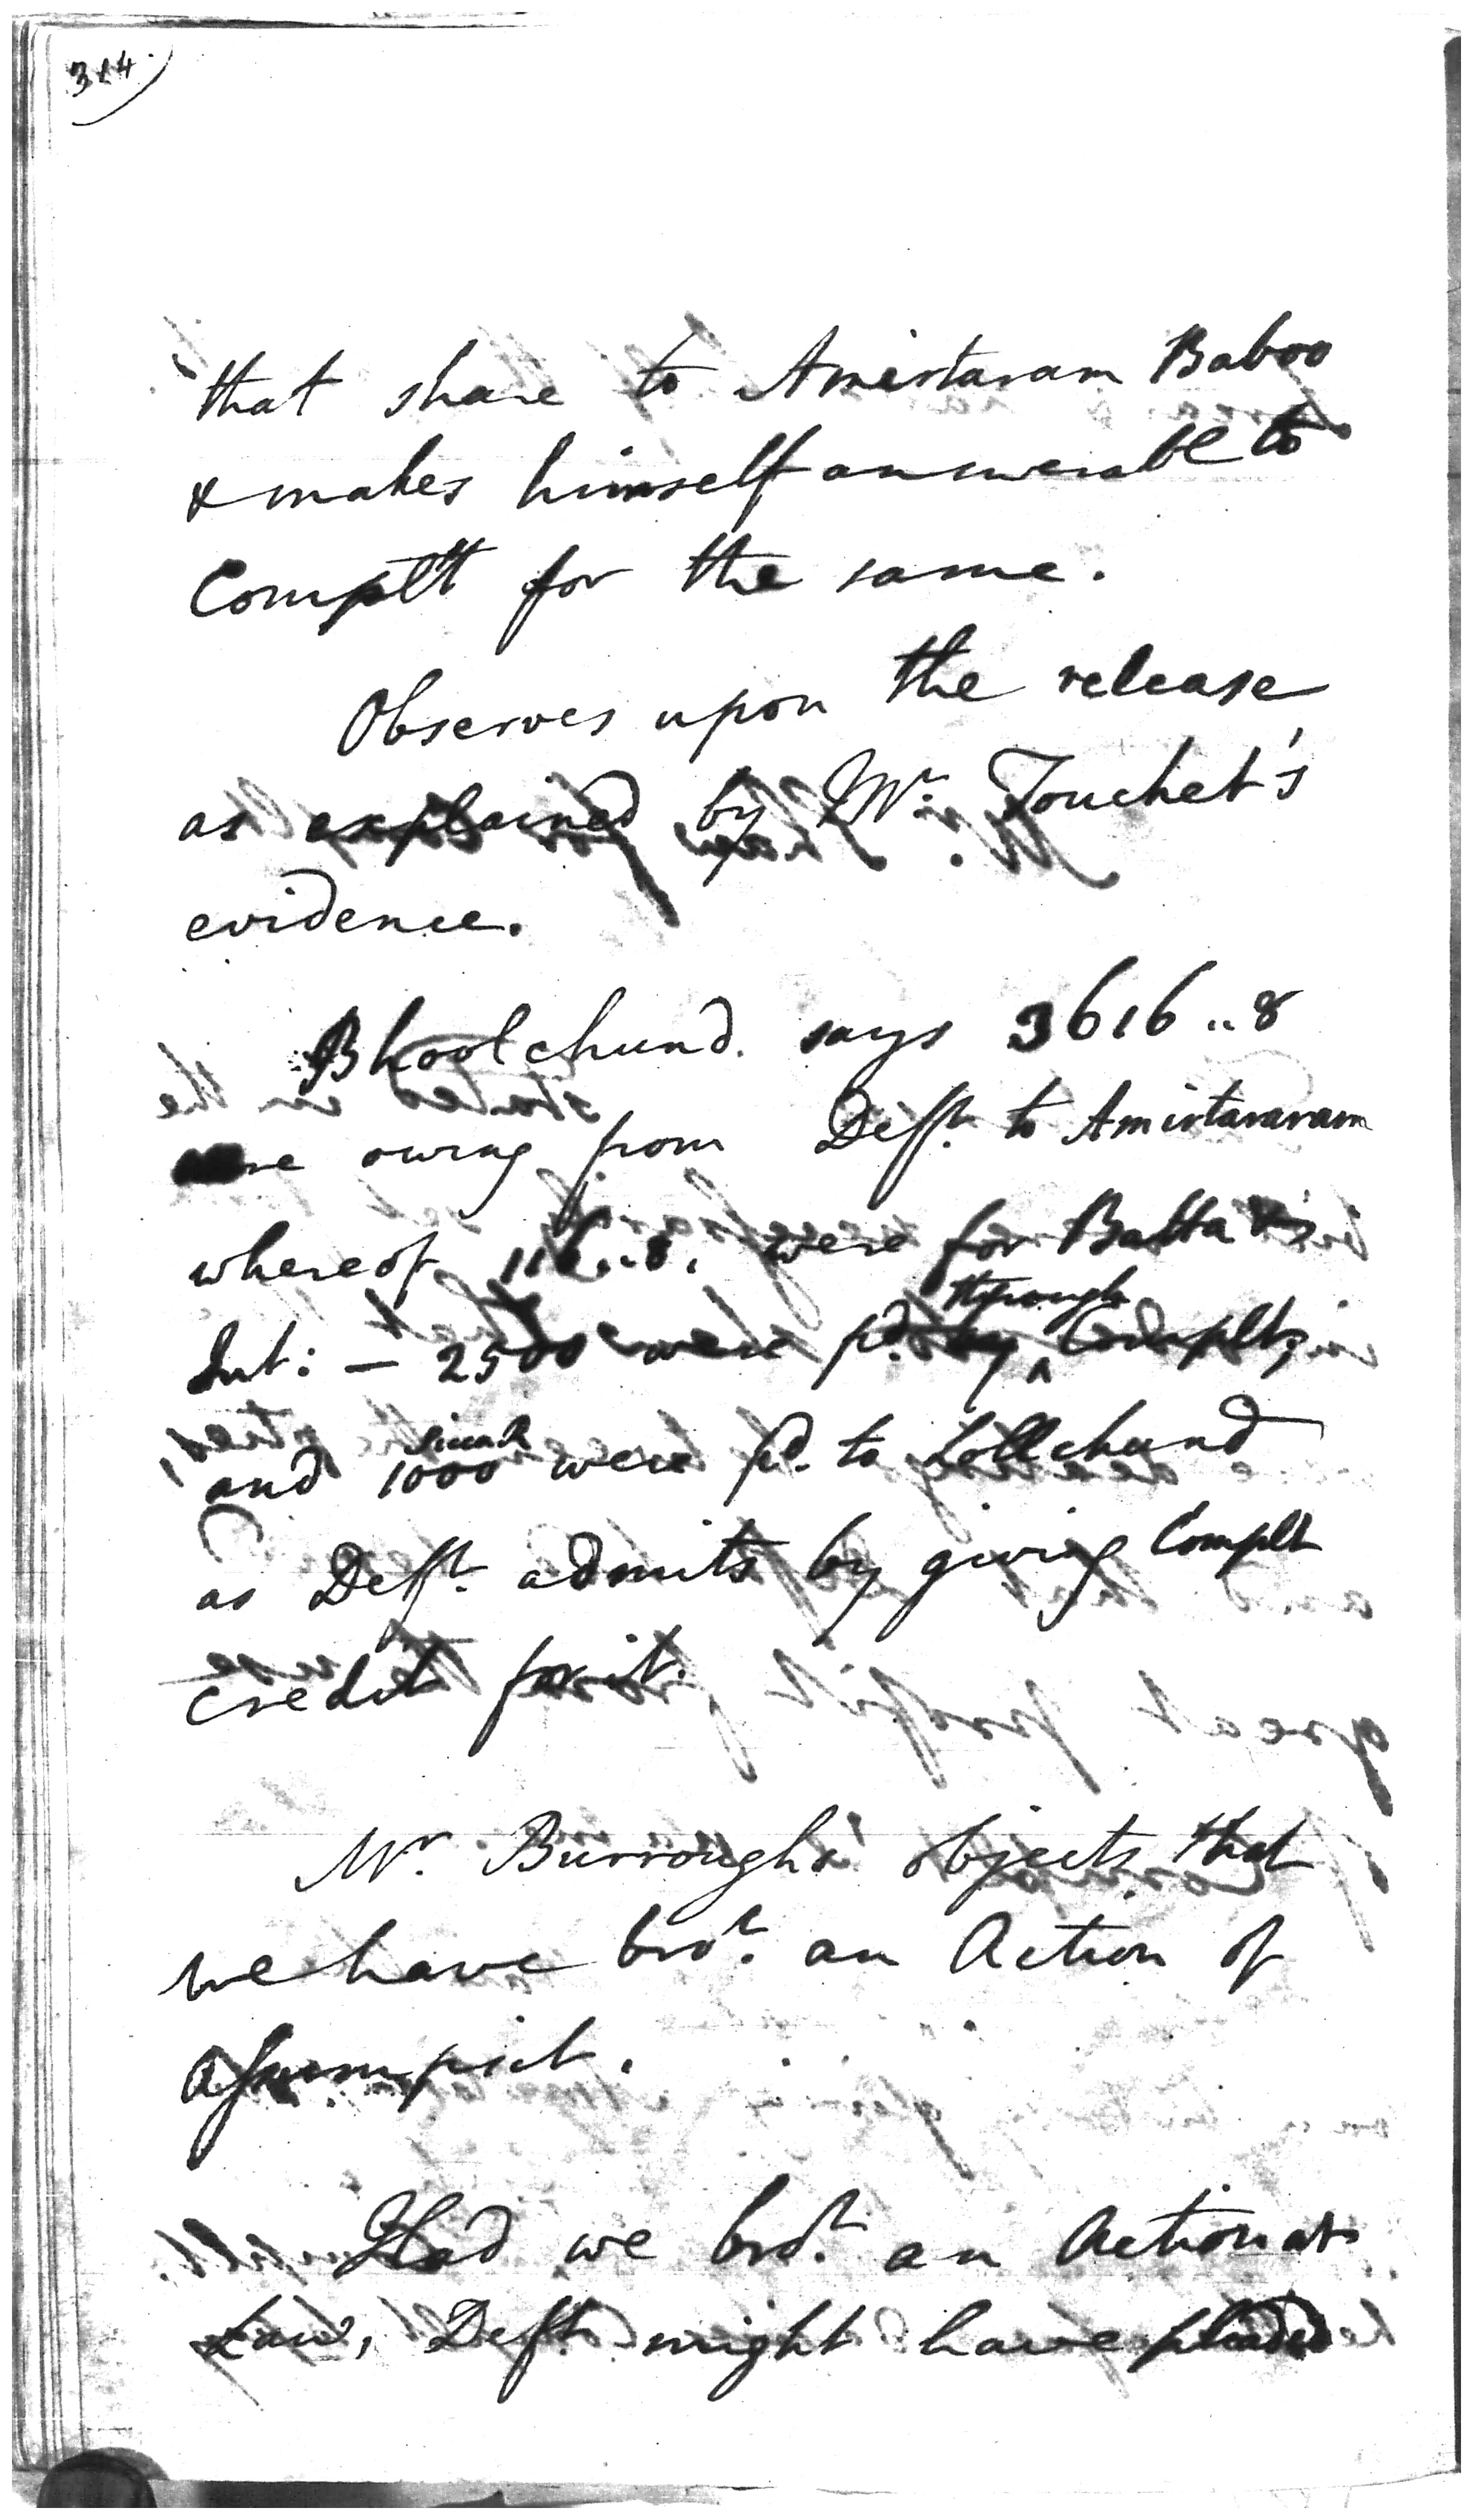 that share to Amirtaram Baboo
& makes himself answerable to
Complt for the same.
Observes upon the release
as explained by Mr. Touchet's
evidence.
Bhoolchund. says 3616..8
owing from Deft. to Amirtararam
whereof 116..8. were for Batta &
Int: — 2500 were pd. by through Complt,
and 1000 sicca R were pd. to Lollchund
as Deft. admits by giving Complt
credit for it.
Mr. Burroughs objects that
we have brot. an Action of
Assumpsit.
Had we brot. an Action at
Law, Deft. might have pleaded